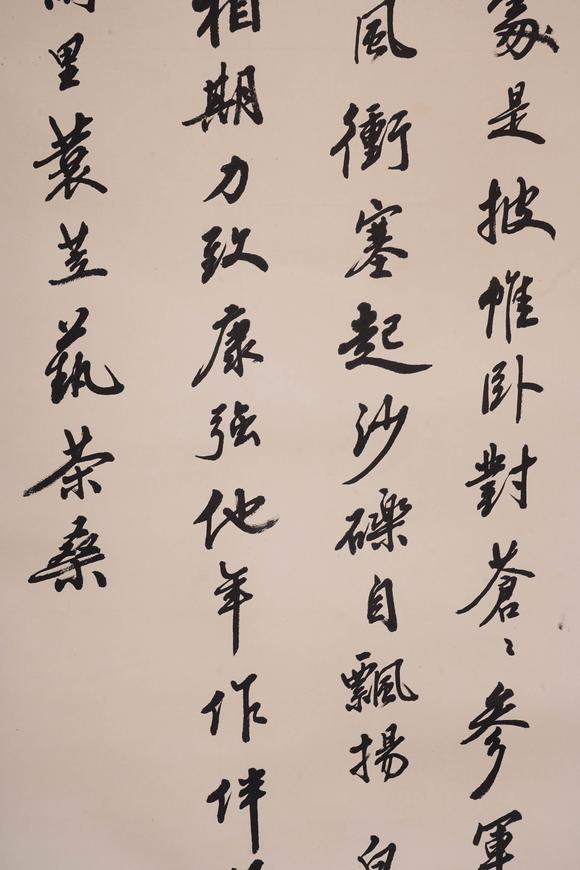 處是披帷卧對蒼〻參軍
風衝塞起沙礫自飄揚白
相期力致康強他年作伴
里蓑笠藝茶桑